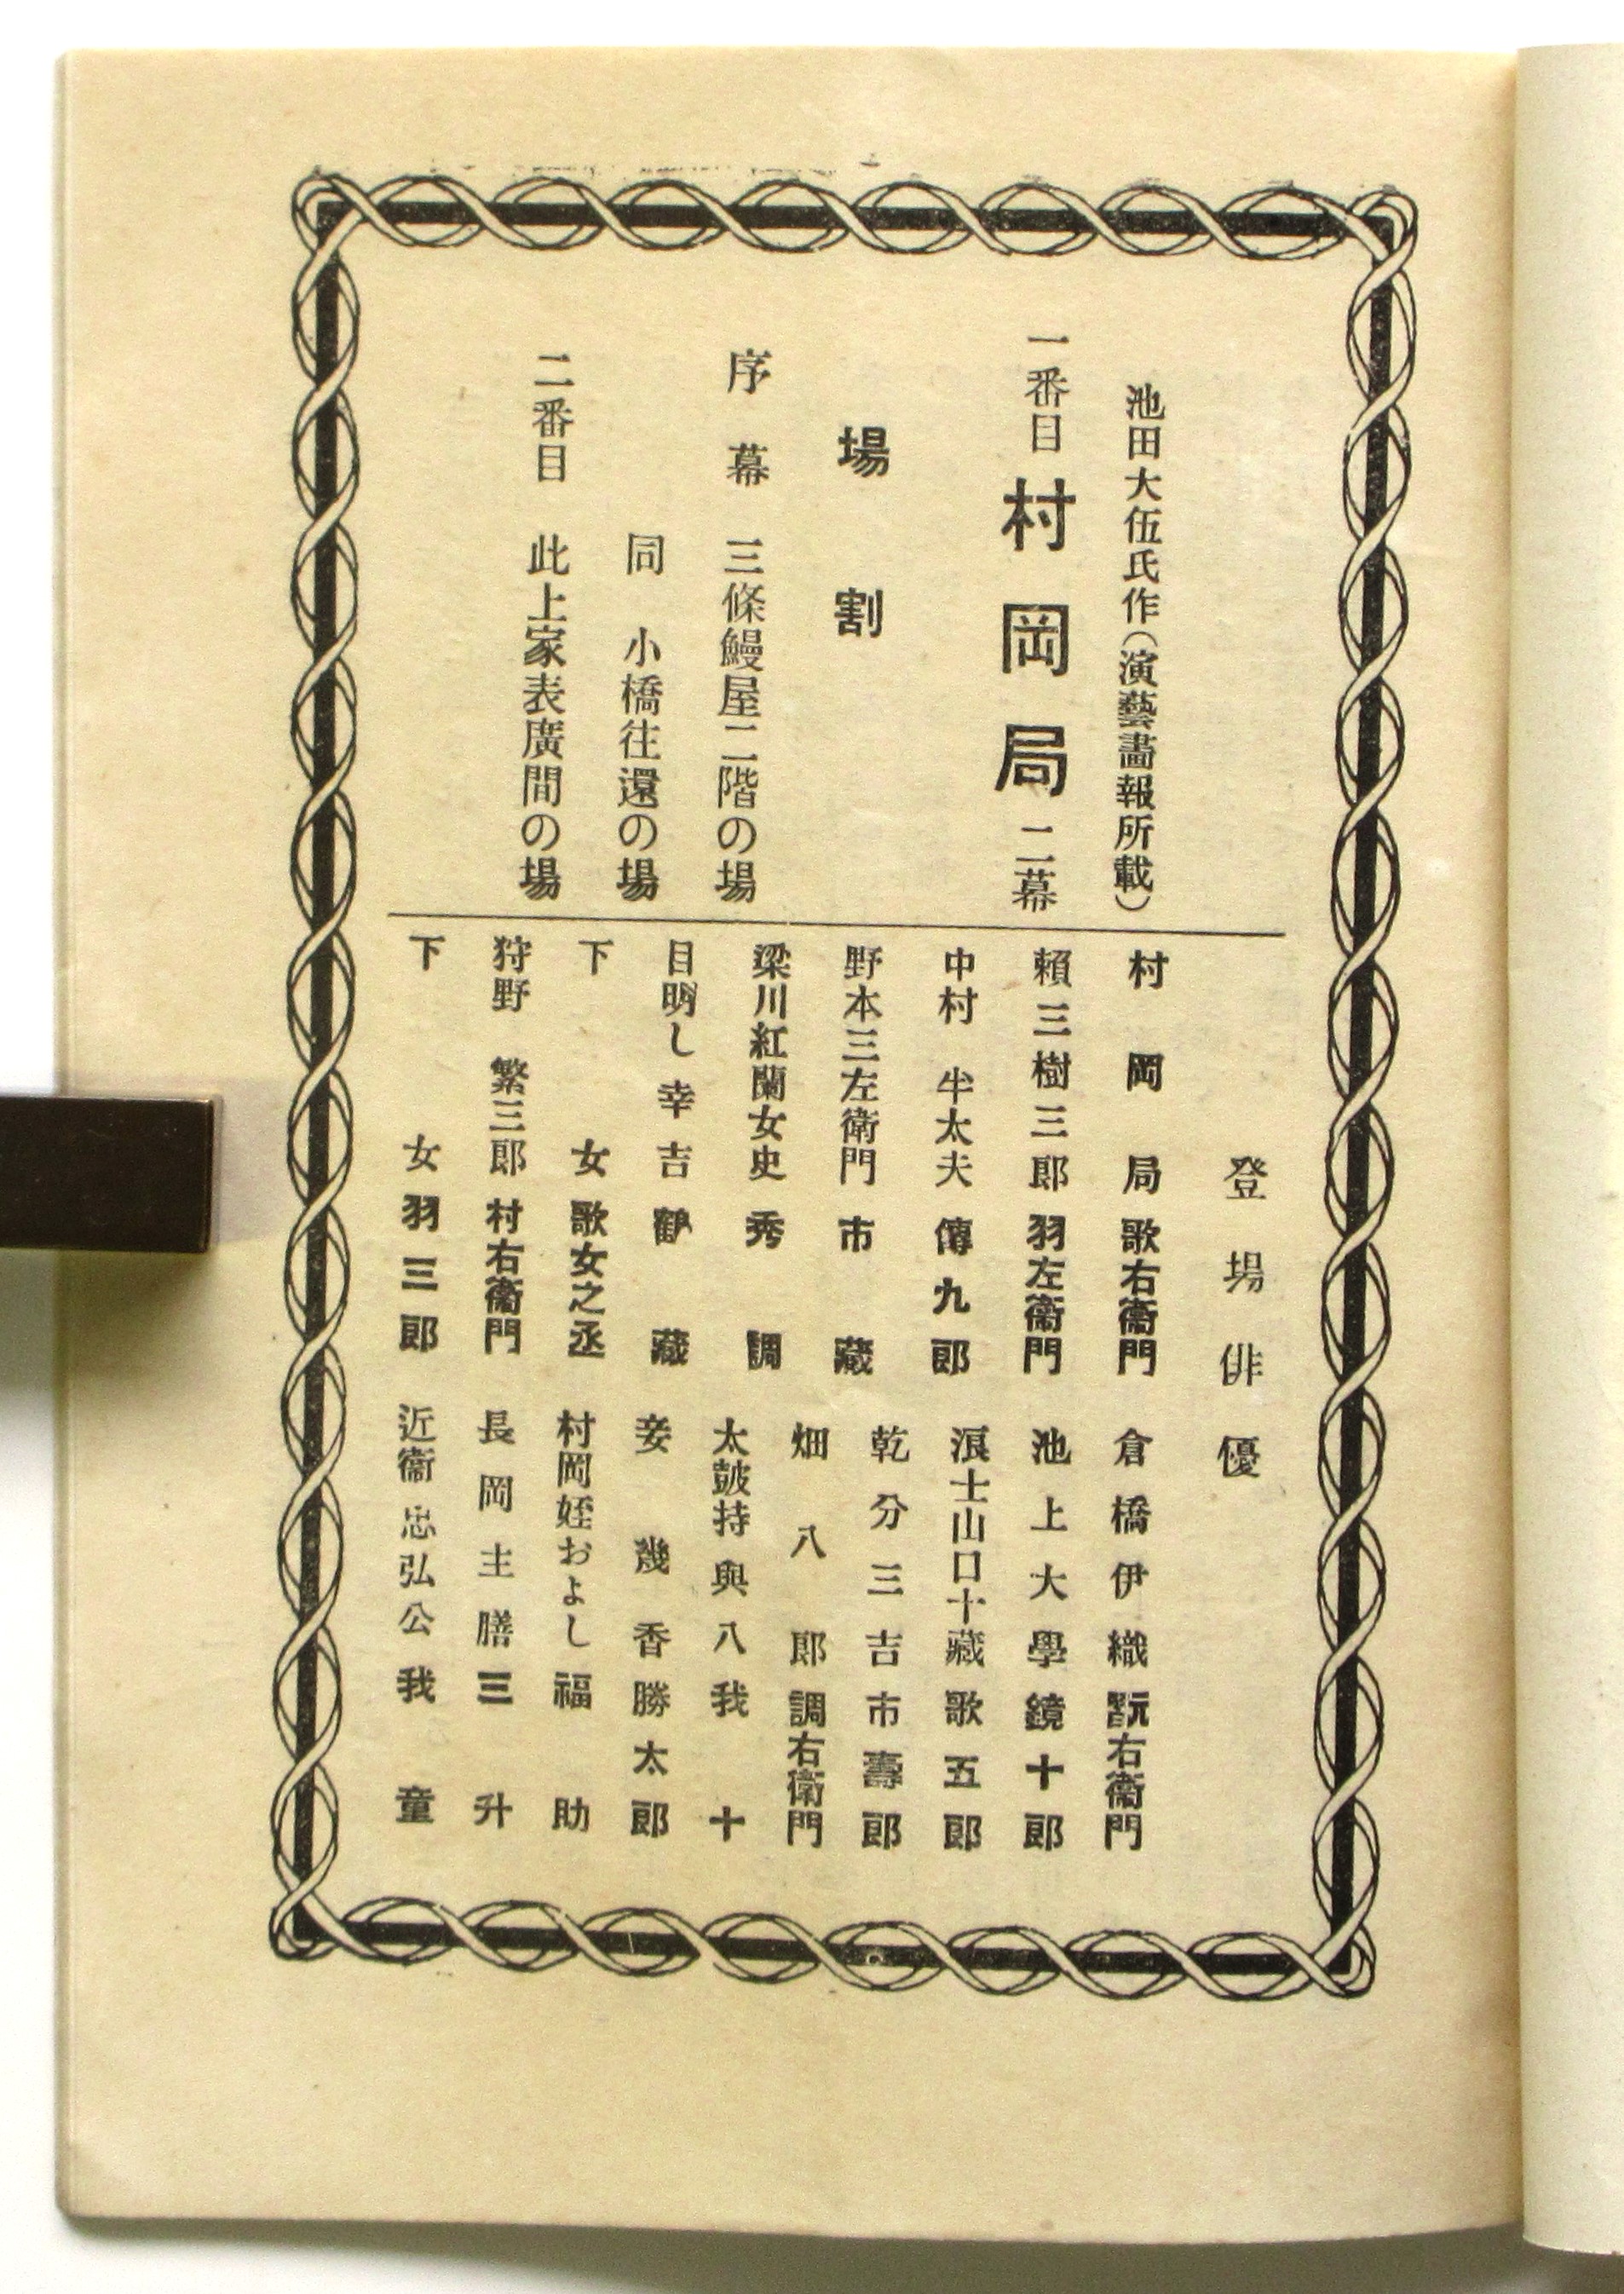 池田大伍氏作(演藝畵報所載)
一番目 村岡局 二幕
場割
序幕 三條鰻屋二階の場
同 小橋往還の場
二番目 此上家表廣間の場
登場俳優
村岡局 歌右衞門
賴三樹三郎 羽左衞門
中村半太夫 傳九郎
野本三左衛門 市藏
梁川紅蘭女史 秀調
目明し幸吉 鶴藏
下女 歌女之丞
狩野繁三郎 村右衞門
下女 羽三郎
倉橋伊織 翫右衞門
池上大學 鏡十郎
浪士山口十藏 歌五郎
乾分三吉 市壽郎
畑八郎 調右衛門
太鼓持與八 我十
妾幾香 勝太郎
村岡姪およし 福助
長岡主膳 三升
近衞忠弘公 我童